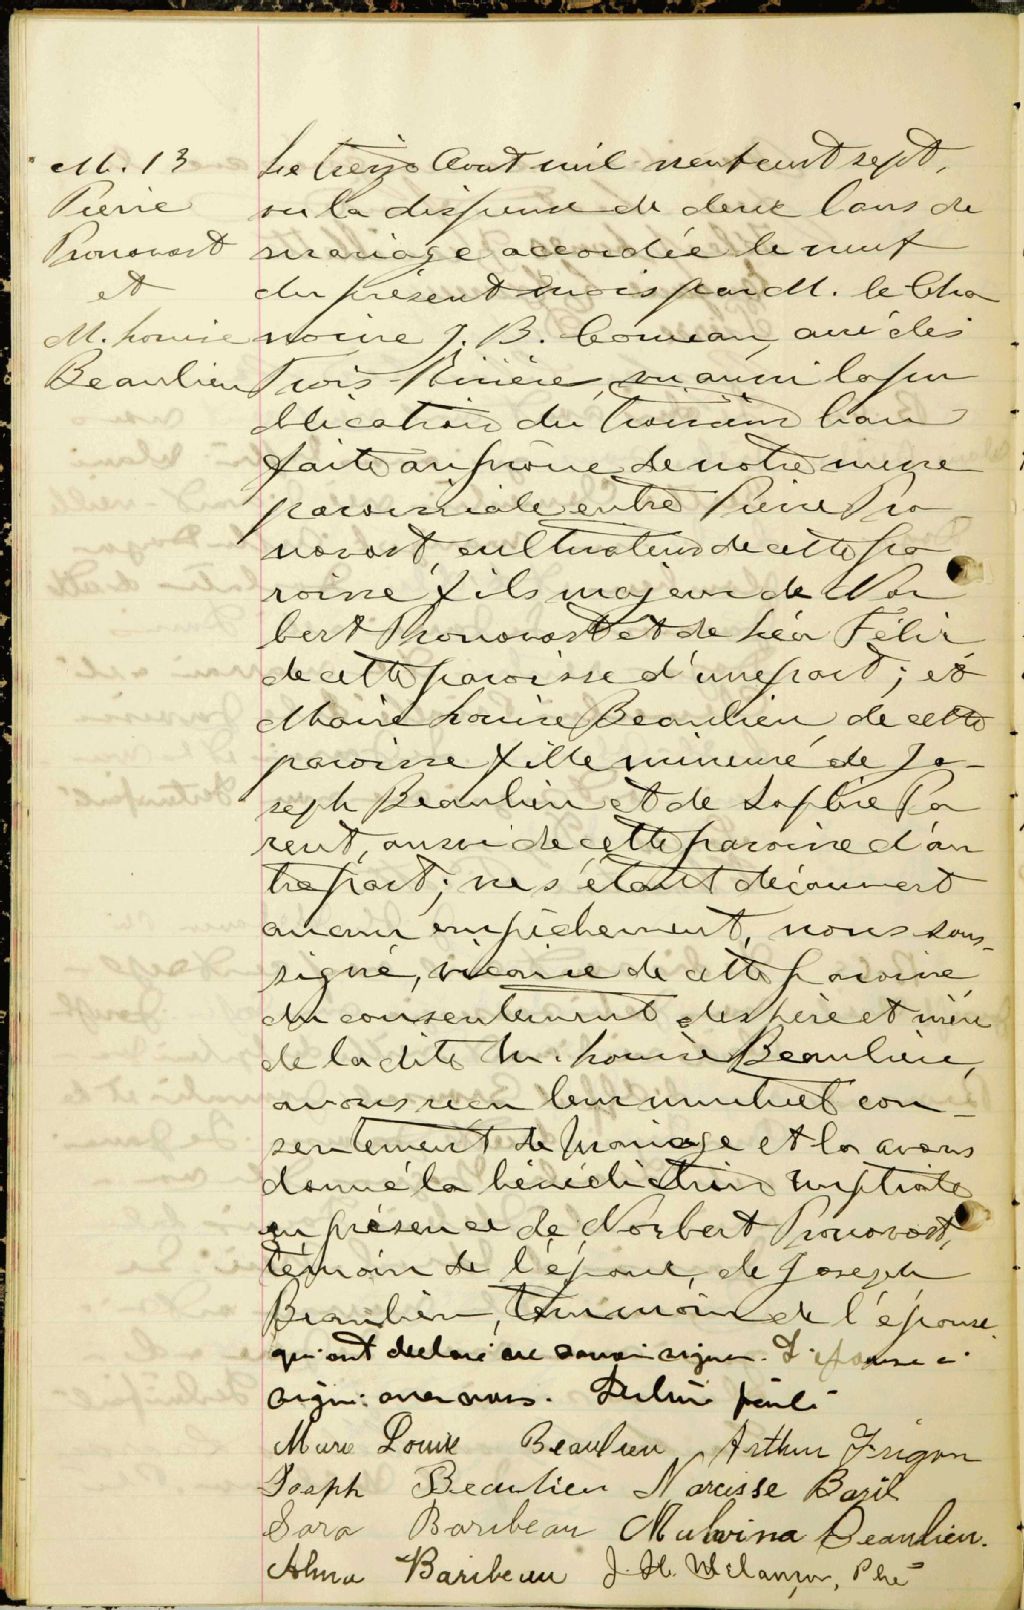 M. 13
Pierre
Pronovost
et
M. Louise
Beaulieu
Le treize Aout mil neuf cent sept,
vu la dispense de deux bans de
mariage accordée le neuf
du présent mois par M. le Cha
noine J. B. Comeau, curé des
Trois-Rivières, vu aussi la pu
blication du troisième ban
faite au prône de notre messe
paroissiale entre Pierre Pro
novost, cultivateur de cette pa
roisse fils majeur de Nor
bert Pronovost et de Léa Félix
de cette paroisse d'une part; et
Marie Louise Beaulieu, de cette
paroisse fille mineure de Jo-
seph Beaulieu et de Sophie Pa
rent, aussi de cette paroisse d'au
tre part; ne s'étant découvert
aucun empêchement, nous sous-
signé, vicaire de cette paroisse
du consentement des père et mère
de la dite M. Louise Beaulieu,
avons reçu leur mutuel con-
sentement de mariage et la avons
donné la bénédiction nuptiale
en présence de Norbert Pronovost,
témoin de l'époux, de Joseph
Beaulieu, temmoin de l'épouse.
qui ont declaré ne savoir signer. L'épouse a
signé avec nous. Lecture faite
Marie Louise Beaulieu Arthur Frigon
Joseph Beaulieu Narcisse Bazil
Sara Baribeau Malvina Beaulieu.
Alma Baribeau J. H. Melançon, Ptre